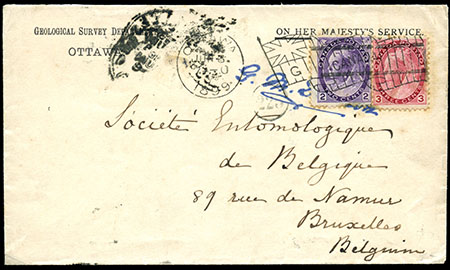 GEOLOGICAL SURVEY DEPARTMENT
OTTAWA
ON HER MAJESTY'S SERVICE.
1899
2 2
3 3
Société Entomologique
de Belgique
89 rue de Namur
Bruxelles
Belgium